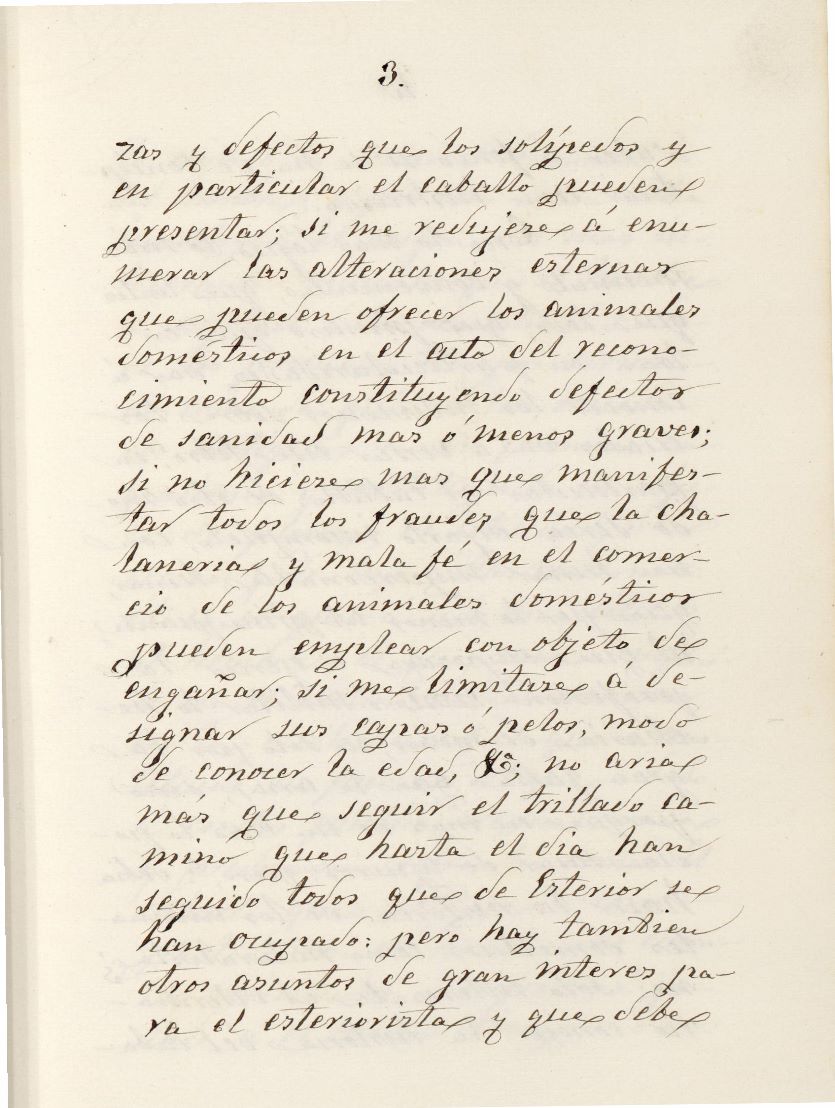 3.
zas y defectos que los solípedos y
en particular el caballo pueden
presentar; si me redujere á enu-
merar las alteraciones esternas
que pueden ofrecer los animales
domésticos en el acto del recono-
cimiento constituyendo defectos
de sanidad mas ó menos graves;
si no hiciere mas que manifes-
tar todos los fraudes que la cha-
laneria y mala fé en el comer-
cio de los animales domésticos
pueden emplear con objeto de
engañar; si me limitare á de-
signar sus capas ó pelos, modo
de conocer la edad, &a; no aria
más que seguir el trillado ca-
mino que hasta el dia han
seguido todos que de Esterior se
han ocupado: pero hay tambien
otros asuntos de gran interes pa-
ra el esteriorista y que debe